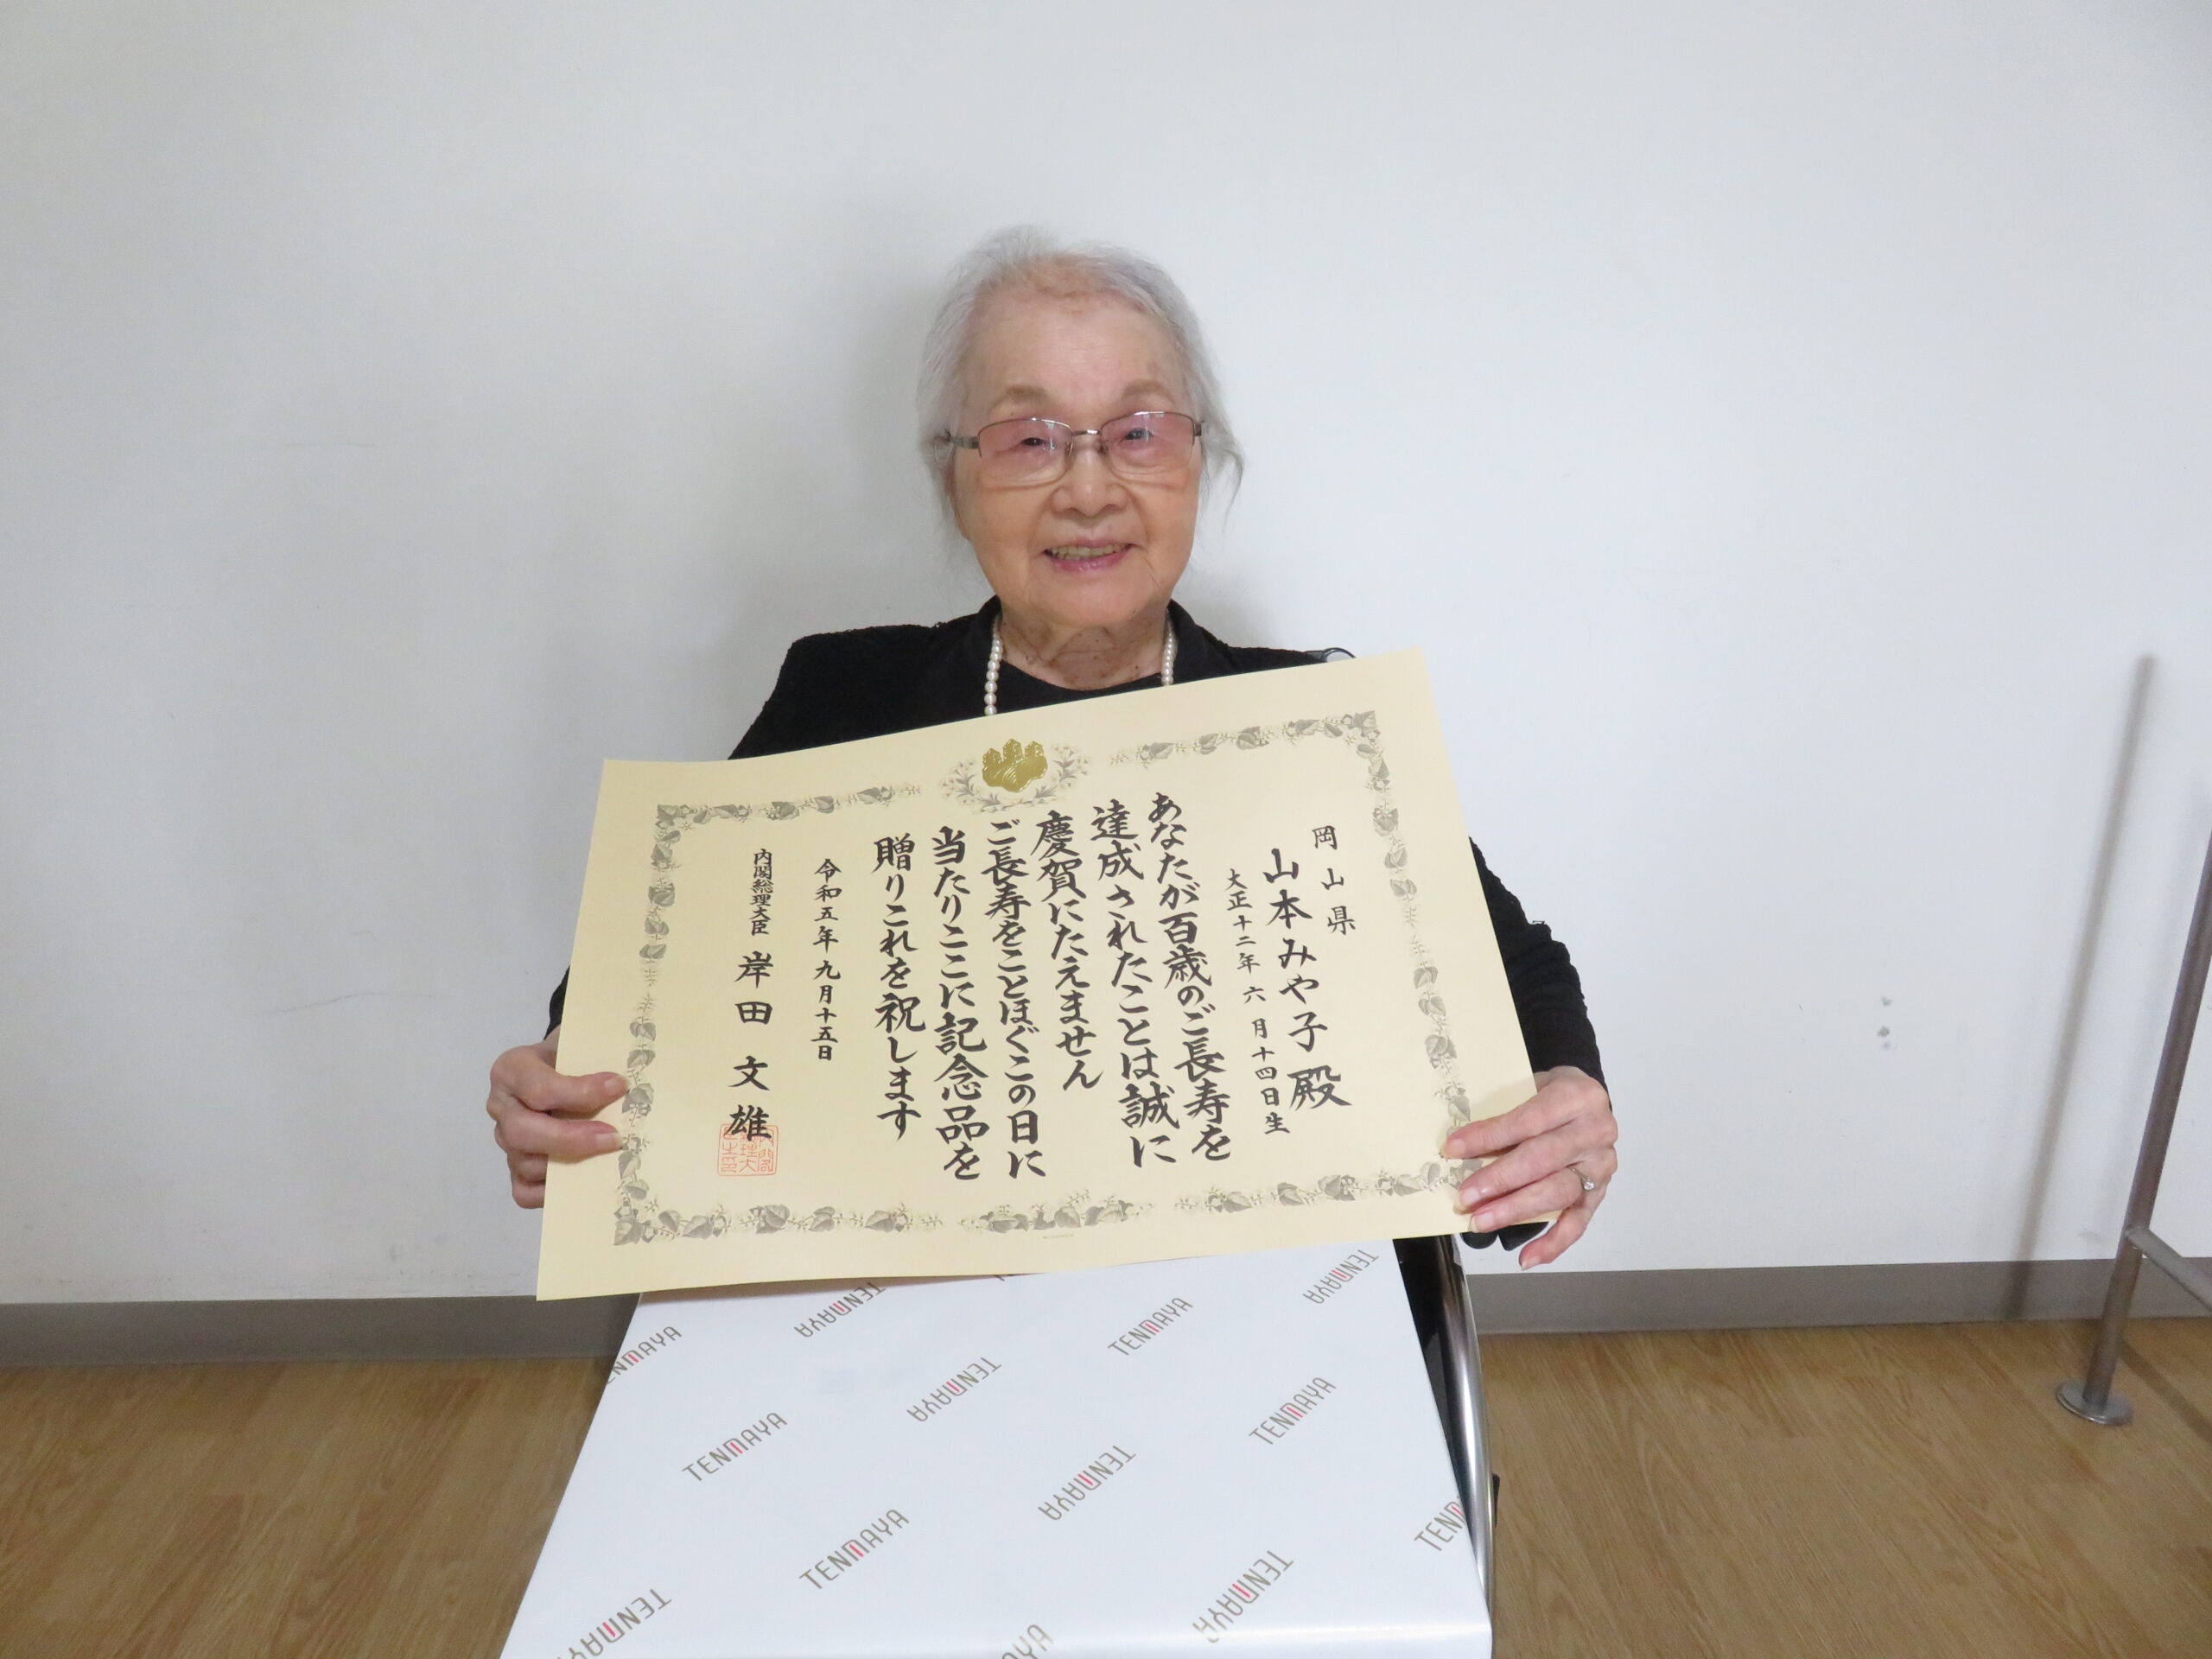 岡山県
山本みや子殿
大正十二年六月十四日生
あなたが百歳のご長寿を
達成されたことは誠に
慶賀にたえません
ご長寿をことほぐこの日に
当たりここに記念品を
贈りこれを祝します
令和五年九月十五日
内閣総理大臣 岸田文雄
TENMAYA
TENMAYA
TENMAYA
TENMAYA
TENMAYA
TENMAYA
TENMAYA
TENMAYA
TENMAYA
TENMAYA
TENMAYA